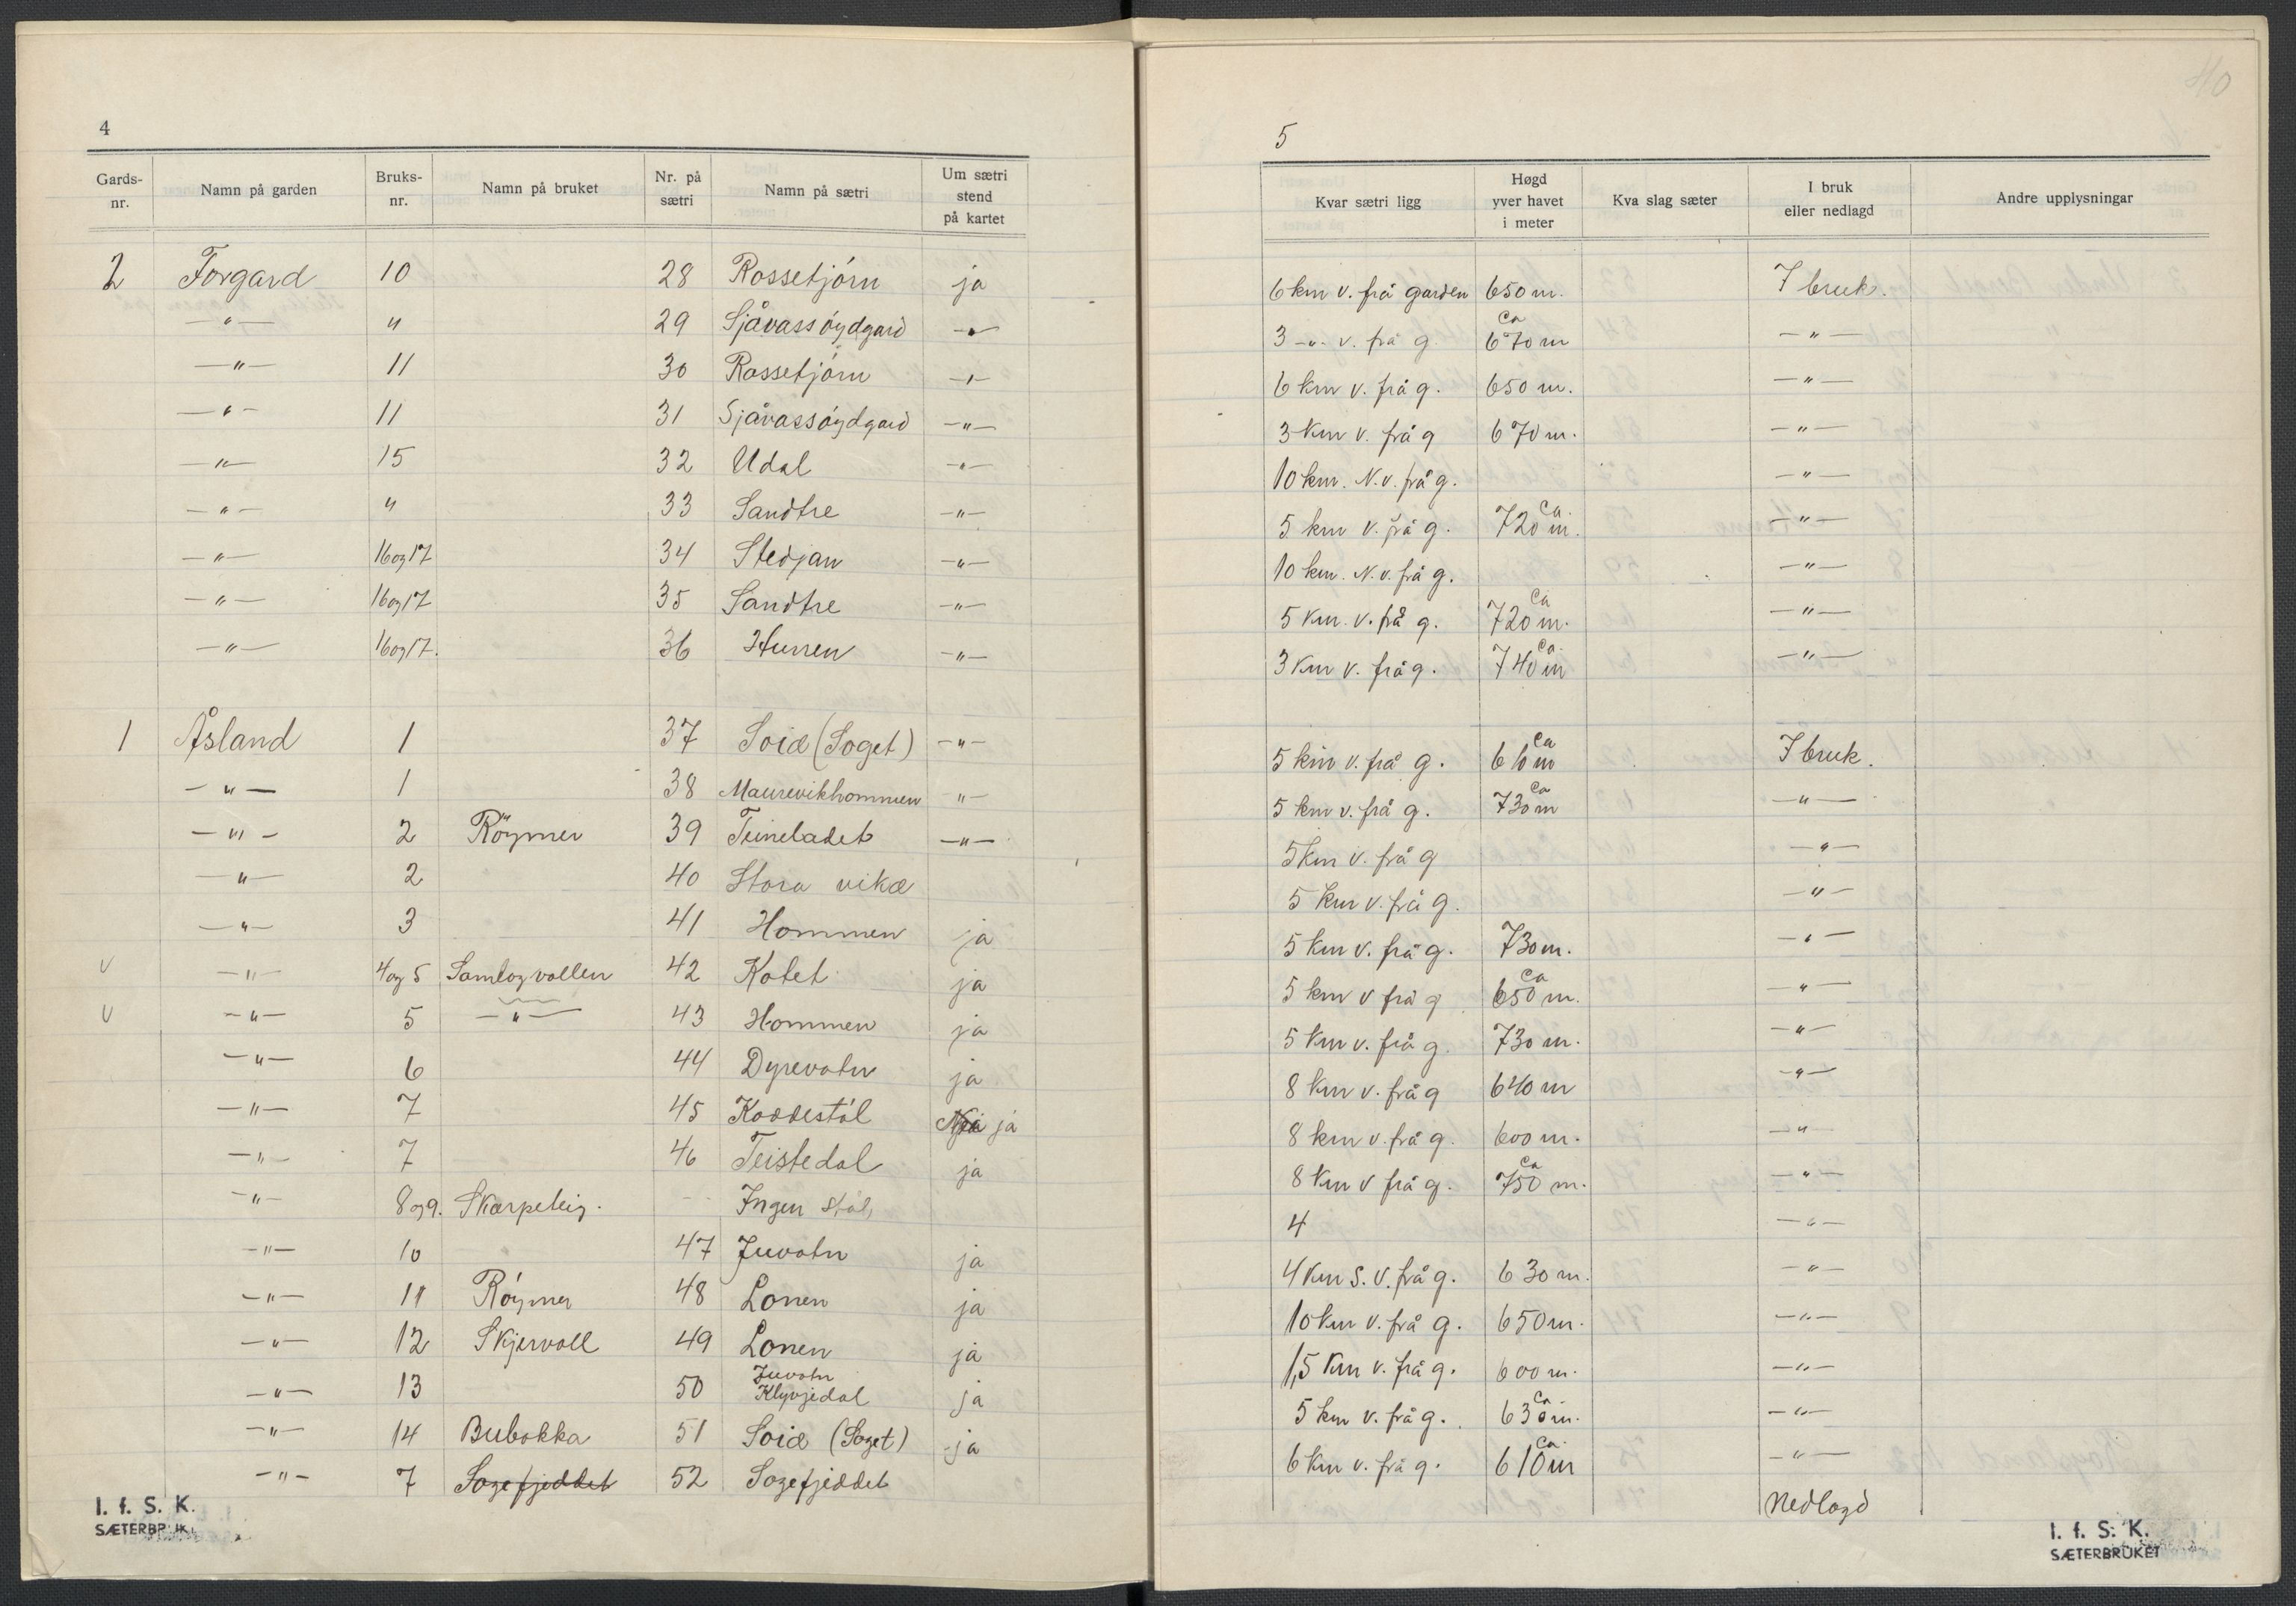 4
Gards-nr. Namn på garden Bruks-nr. Namn på bruket Nr. på sætri Namn på sætri Um sætri stend på kartet
2 Forgard 10 28 Rossetjórn ja
—"— " 29 Sjåvassóydgard —"—
—"— 11 30 Rossetjórn —"—
—"— 11 31 Sjåvassóydgard —"—
—"— 15 32 Udal —"—
—"— " 33 Sandtre —"—
—"— 16 og 17 34 Stedjan —"—
—"— 16 og 17 35 Sandtre —"—
—"— 16 og 17. 36 Hunen —"—
1 Åsland 1 37 Soid (Soget) —"—
—"— 1 38 Maurevikhommen "—
—"— 2 Röymer 39 Teineladet —"—
—"— 2 40 Stora vikæ
—"— 3 41 Hommen ja
v —"— 4 og 5 Samlogvollen 42 Kotet ja
v —"— 5 —"— 43 Hommen ja
—"— 6 44 Dyrevatn ja
—"— 7 45 Koddestól ja
—"— 7 46 Teistedal ja
—"— 8 og 9. Skarpeteig. Ingen stól
—"— 10 47 Juvatn ja
—"— 11 Róymer 48 Lonen ja
—"— 12 Skjervoll 49 Lonen ja
—"— 13 50 Juvatn Klyvjedal ja
—"— 14 Bubakka 51 Soid (Soget) ja
—"— 7 Sogefjeddet 52 Sogefjeddet
I. f. S. K.
SÆTERBRUK
5
Kvar sætri ligg Høgd yver havet i meter Kva slag sæter I bruk eller nedlagd Andre upplysningar
6 km v. frå garden 650 m. I bruk.
3 —"— v. frå g ca 670 m —"—
6 km v. frå g. 650 m. —"—
3 km v. frå g 670 m. —"—
10 km. N.v. frå g. —"—
5 km v. frå g. ca. 720 m. —"—
10 km. N.v. frå g. —"—
5 km. v. frå g. ca 720 m. —"—
3 km v. frå g. ca. 740 m —"—
5 km v. frå g. ca 610 m I bruk.
5 km v. frå g. ca 730 m —"—
5 km v. frå g —"—
5 km v. frå g. —"—
5 km v. frå g. 730 m. —"—
5 km v frå g ca 650 m. —"—
5 km v. frå g. 730 m. —"—
8 km v. frå g 640 m —"—
8 km v. frå g. 600 m. —"—
8 km v frå g. ca 750 m. —"—
4 —"—
4 km S.V. frå g. 630 m. —"—
10 km v. frå g. 650 m. —"—
1,5 km v. frå g. 600 m. —"—
5 km v. frå g. ca 630 m. —"—
6 km v. frå g. ca. 610 m —"—
Nedlagd
I. f. S. K.
SÆTERBRUKET